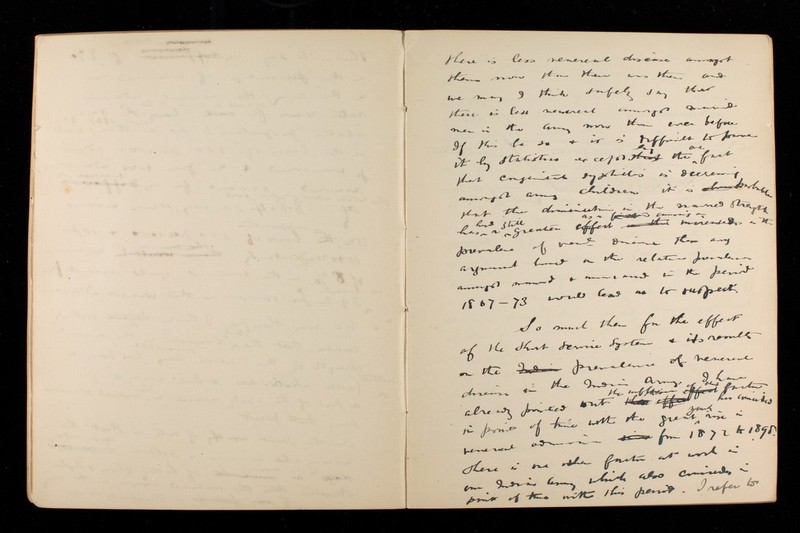 there is less venereal disease amongst
them now than there was then and
we may I think safely say that
there is less venereal amongst married
men in the army now than ever before
If this be so & it is difficult to prove
it by statistics except the fact
that congenital syphilis is decreasing
amongst army children it is probable
that the diminution in the married strength
has had still a greater effect in the
prevalence of than any
argument based on the relative prevalence
amongst married & unmarried in the period
1867–73 would lead us to suspect.
So much then for the effect
of the Short Service System & its results
on the Indian prevalence of venereal
disease in the Indian Army. I have
already pointed out the factor has coincided
in point of time with the great rise in
venereal from 1872 to 1895.
There is one other factor at work in
our Indian Army which also coincides in
point of time with this period. I refer to